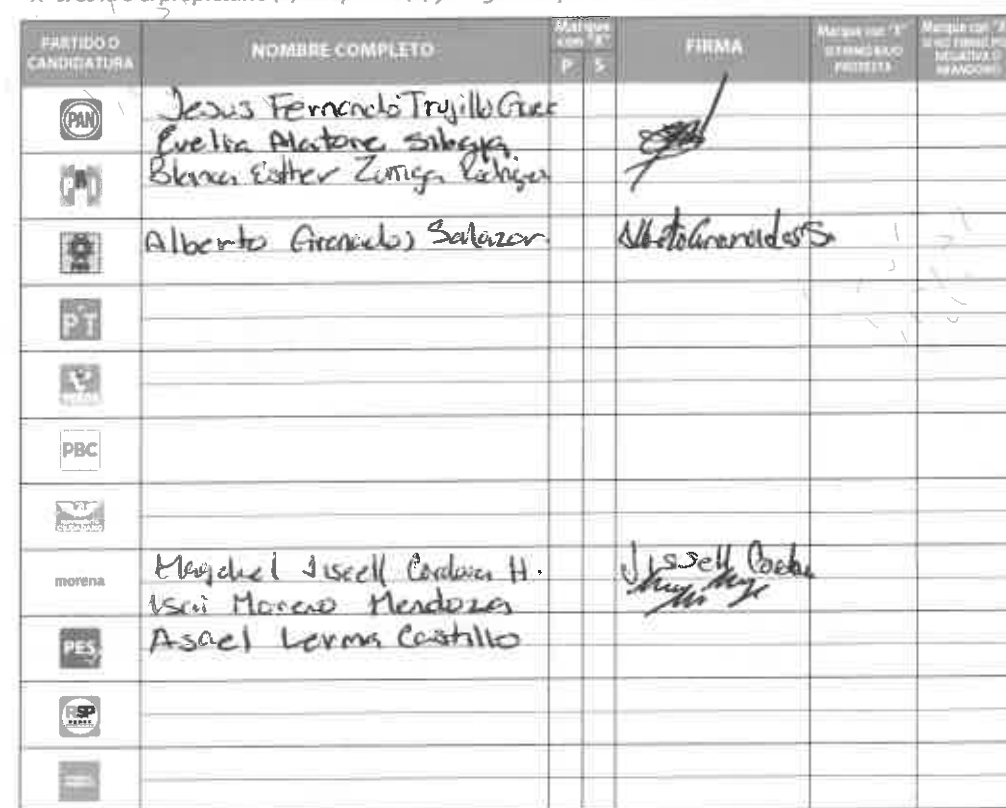 PARTIDO O CANDIDATURA
NOMBRE COMPLETO
Marque con "X"
P S
FIRMA
Marque con "X" SI FIRMÓ BAJO PROTESTA
Marque con "X" SI NO FIRMÓ POR NEGATIVA O ABANDONO
PAN
Jesus Fernando Trujillo
Evelia
Blanca Esther Zuñiga
PRD
Alberto Granados Salazar
Alberto Granados S.
PT
VERDE
PBC
CIUDADANO
morena
Jissell Cordova H.
Isai Moreno Mendoza
PES
Asael Lerma Castillo
RSP